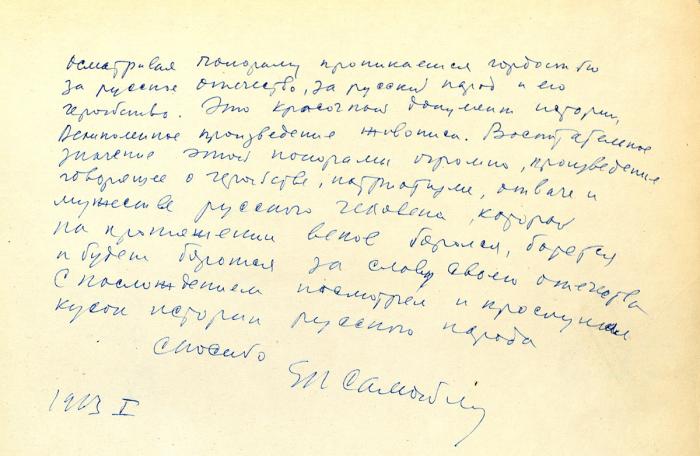 осматривая панораму проникаешся гордостью
за русское отечество, за русский народ и его
геройство. Это красочный документ истории,
великолепное произведение живописи. Воспитательное
значение этой панорамы огромно, произведение
говорящее о геройстве, патриотизме, отваге и
мужестве русского человека, который
на протяжении веков боролся, борется
и будет бороться за славу своего отечества
С наслаждением посмотрел и прослушал
кусок истории русского народа
Спасибо
1963 I